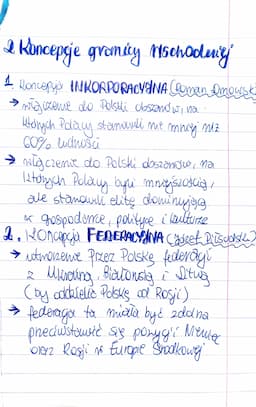 2 Koncepcje granicy Wschodniej
1. Koncepcja INKORPORACYJNA (Roman Dmowski)
→ włączenie do Polski obszarów, na
których Polacy stanowili nie mniej niż
60% ludności
→ włączenie do Polski obszarów, na
których Polacy byli mniejszością,
ale stanowili elitę dominującą
w gospodarce, polityce i kulturze
2. Koncepcja FEDERACYJNA (Józef Piłsudski)
→ utworzenie przez Polskę federacji
z Ukrainą, Białorusią i Litwą
(by oddzielić Polskę od Rosji)
→ federacja ta miała być zdolna
przeciwstawić się potędze Niemiec
oraz Rosji w Europie Środkowej